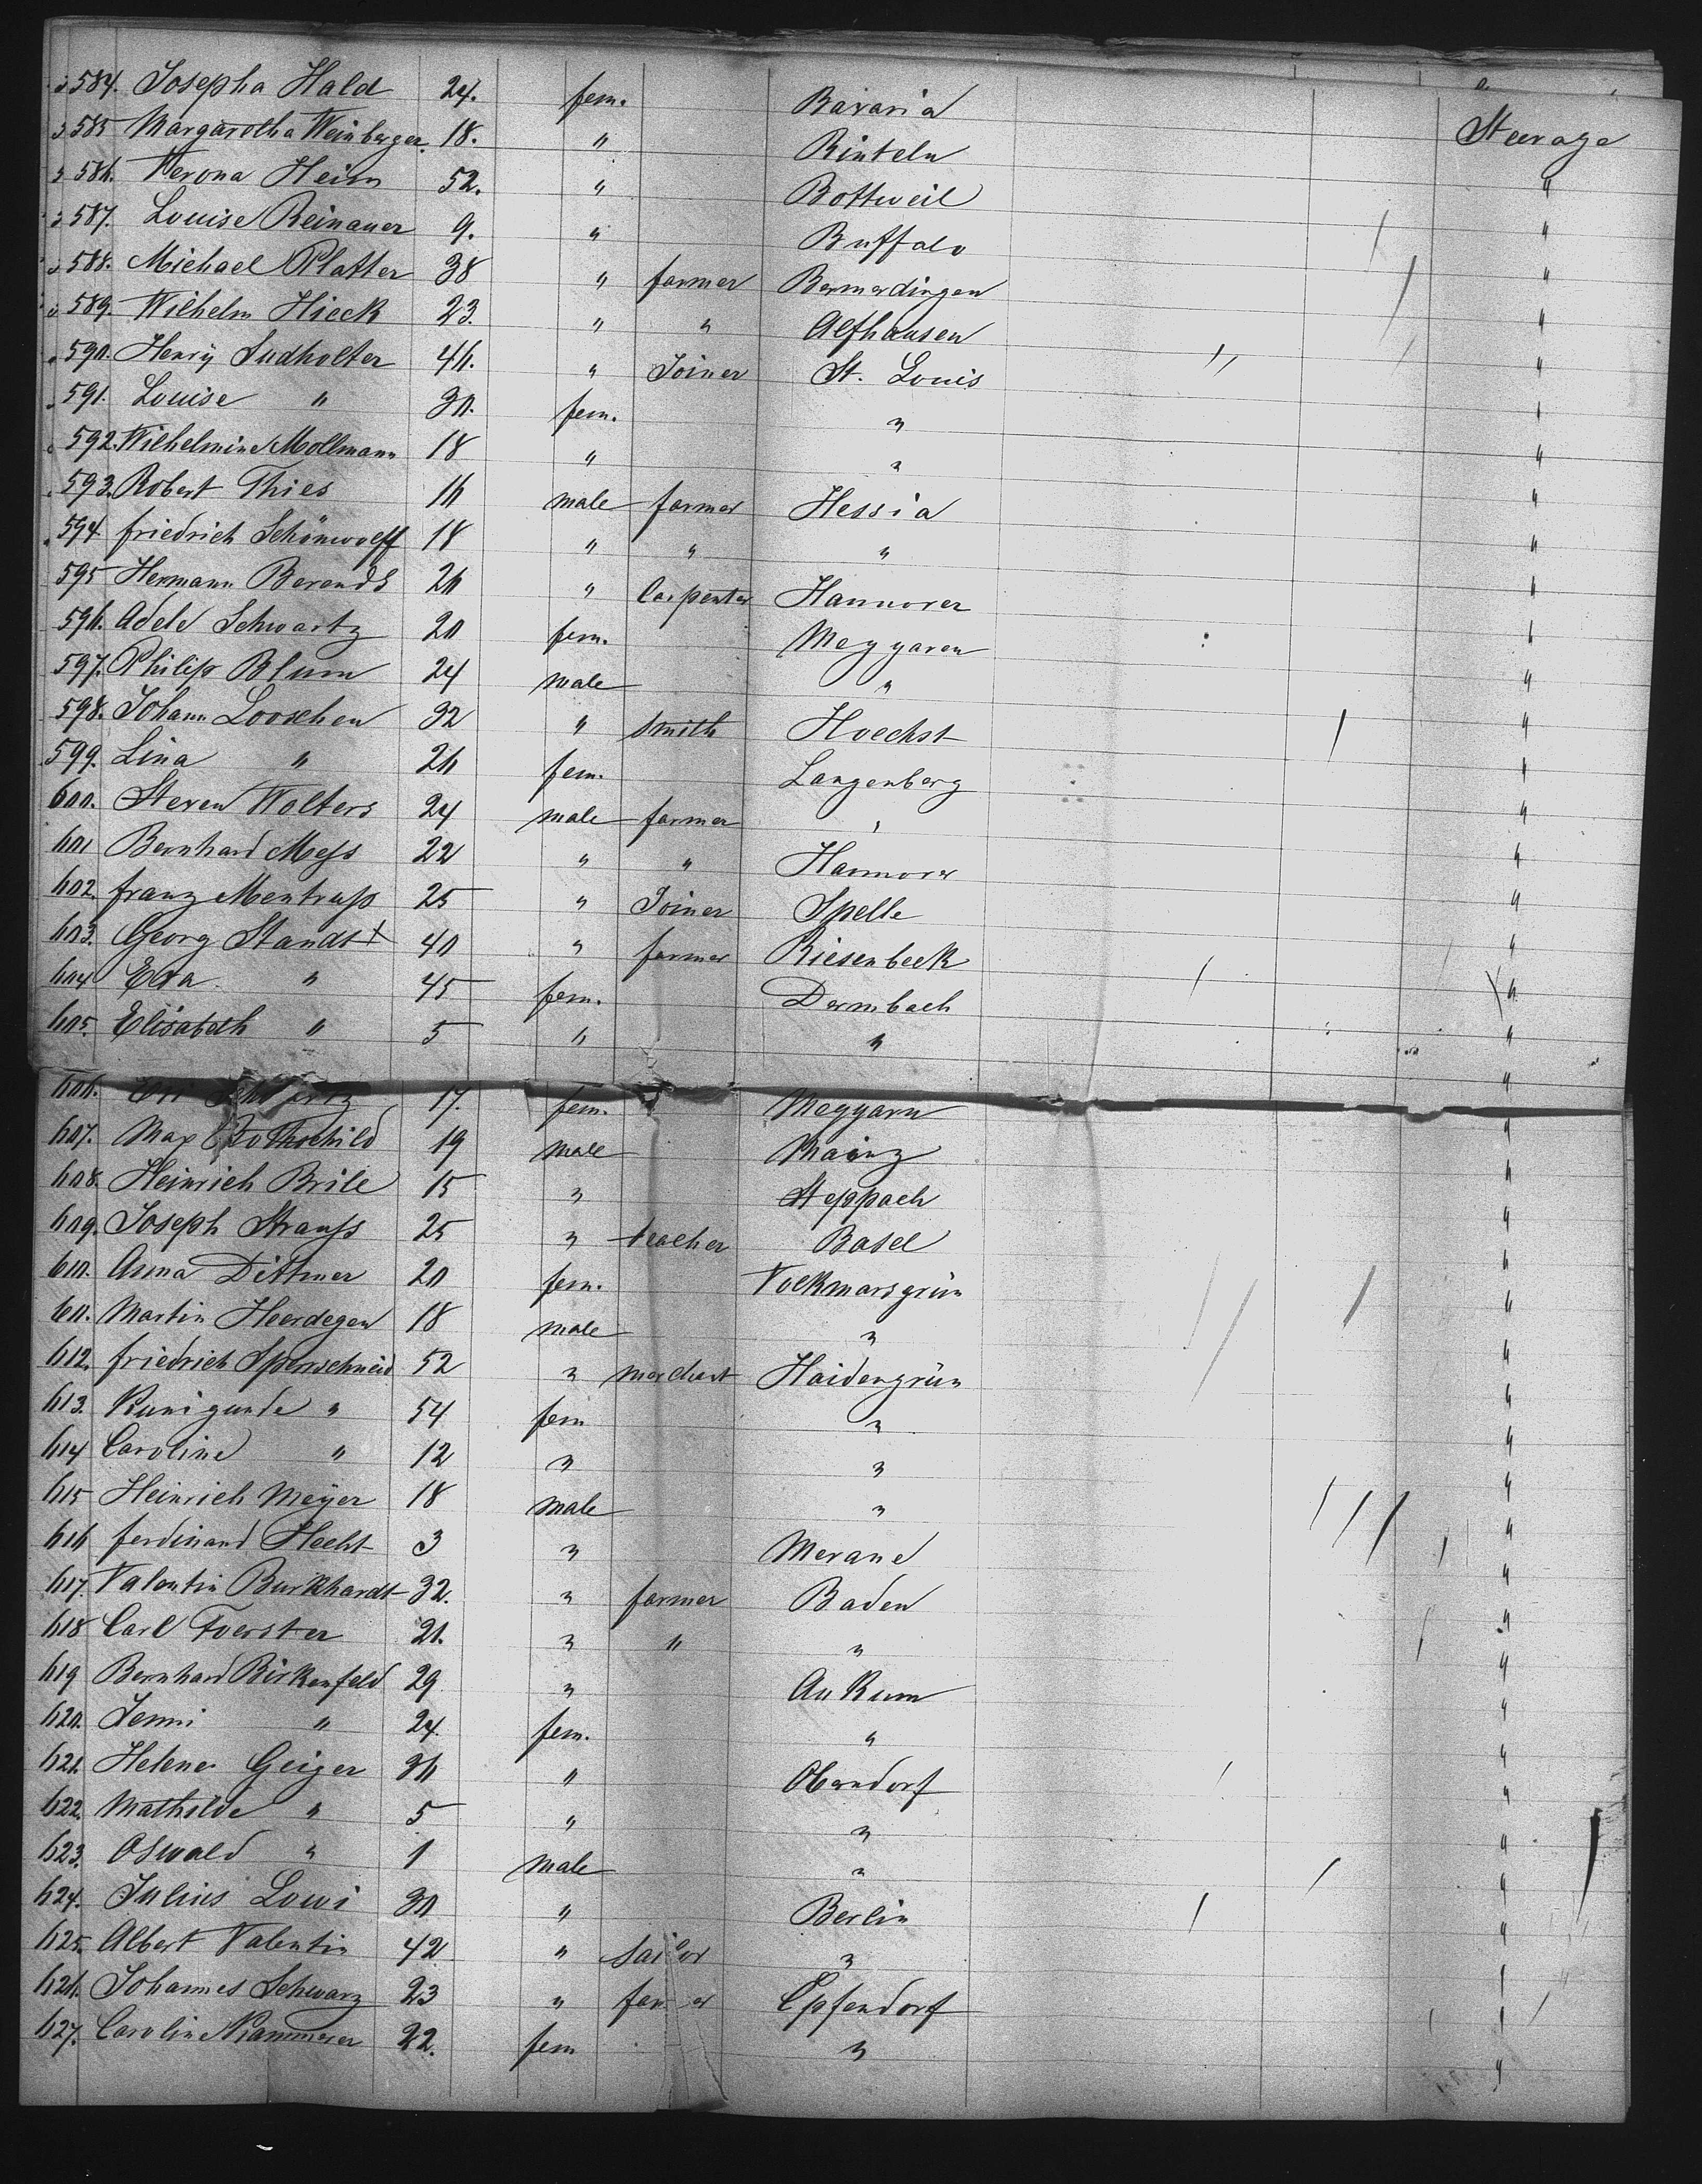 584. Josepha Hald 24. fem. Bavaria Steerage
585 Margaretha Weinberger. 18. " Rinteln "
586. Verona Heim 52. " Rottweil "
587. Louise Reinauer 9. " Buffalo "
588. Michael Platter 38 " farmer Bermardingen "
589. Wilhelm Hieck 23. " " Alfhausen "
590. Henry Sudholter 46. " Joiner St. Louis "
591. Louise " 30. fem. " "
592. Wilhelmine Mollmann 18 " " "
593. Robert Thies 16 male farmer Hessia "
594 friedrich Schönwolff 18 " " " "
595 Hermann Berends 26 " Carpenter Hannover "
596. Adele Schwartz 20 fem. Meggaren "
597. Philip Blum 24 male " "
598. Johann Looschen 32 " smith Hoechst "
599. Lina " 26 fem. Langenberg "
600. Steven Wolters 24 male farmer " "
601 Bernhard Mess 22 " " Hannover "
602. franz Mentrup 25 " Joiner Spelle "
603. Georg Standt 40 " farmer Riesenbeck "
604 Eva " 45 fem. Dermbach "
605. Elisabeth " 5 " " "
606. 17. fem. Meggarn "
607. Max Rothschild 19 male Mainz "
608. Heinrich Brile 15 " Steppach "
609. Joseph Strauss 25 " teacher Basel "
610. Anna Dittmer 20 fem. Volkmarsgrün "
611. Martin Heerdegen 18 male " "
612. friedrich Spörrschneid 52 " merchant Haidengrün "
613. Kunigunde " 54 fem " "
614 Caroline " 12 " " "
615 Heinrich Meÿer 18 male " "
616 ferdinand Hecht 3 " Merane "
617. Valentin Burkhardt 32. " farmer Baden "
618 Carl Foerster 21. " " " "
619 Bernhard Birkenfeld 29 " Ankum "
620. Jenni " 24. fem. " "
621. Helene Geiger 36 " Oberndorf "
622. Mathilde " 5 " " "
623. Oswald " 1 male " "
624. Julius Lowi 30 " Berlin "
625. Albert Valentin 42 " sailor " "
626. Johannes Schwarz 23 " farmer Epfendorf "
627. Caroline Kammerer 22. fem " "